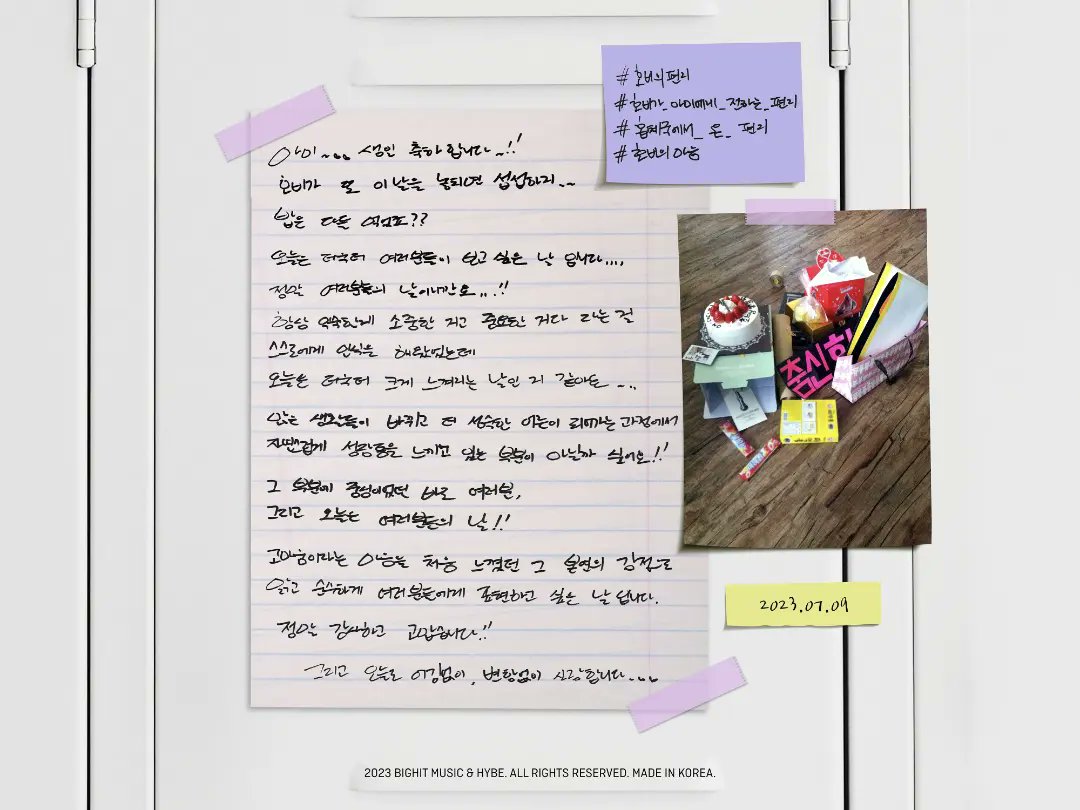 아미~~~ 생일 축하합니다~!!
호비가 또 이날을 놓치면 섭섭하지~~
밥은 다들 여셨죠??
오늘은 더욱더 여러분들이 보고 싶은 날 입니다....
정말 여러분들의 날이니깐요...!!
항상 익숙한게 소중한 거고 중요한 거다 라는걸
스스로에게 인식을 해왔었는데
오늘은 더욱더 크게 느껴지는 날인 거 같아요 ~..
많은 생각들이 바뀌고 더 성숙한 어른이 되가는 과정에서
자연스럽게 성장통을 느끼고 있는 부분이 아닐까 싶어요!!
그 부분에 중심이었던 바로 여러분,
그리고 오늘은 여러분들의 날!!
고마움이라는 마음을 처음 느꼈던 그 본연의 감정으로
맑고 순수하게 여러분들에게 표현하고 싶은 날 입니다.
정말 감사하고 고맙습니다!!
그리고 오늘도 어김없이, 변함없이 사랑합니다....
#호비의편지
#호비가_아미에게_전하는_편지
#홉계국에서_온_편지
#호비의마음
춤신
2023.07.09
2023 BIGHIT MUSIC & HYBE. ALL RIGHTS RESERVED. MADE IN KOREA.